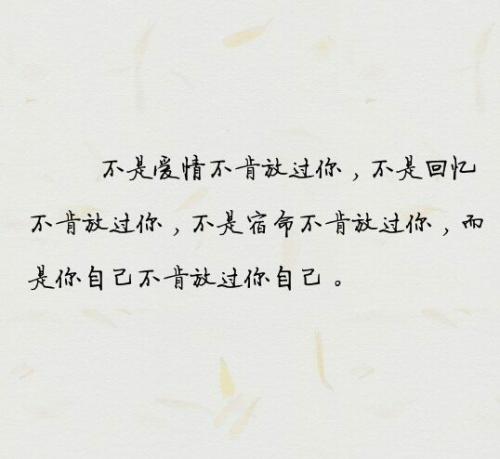 不是爱情不肯放过你，不是回忆
不肯放过你，不是宿命不肯放过你，而
是你自己不肯放过你自己。